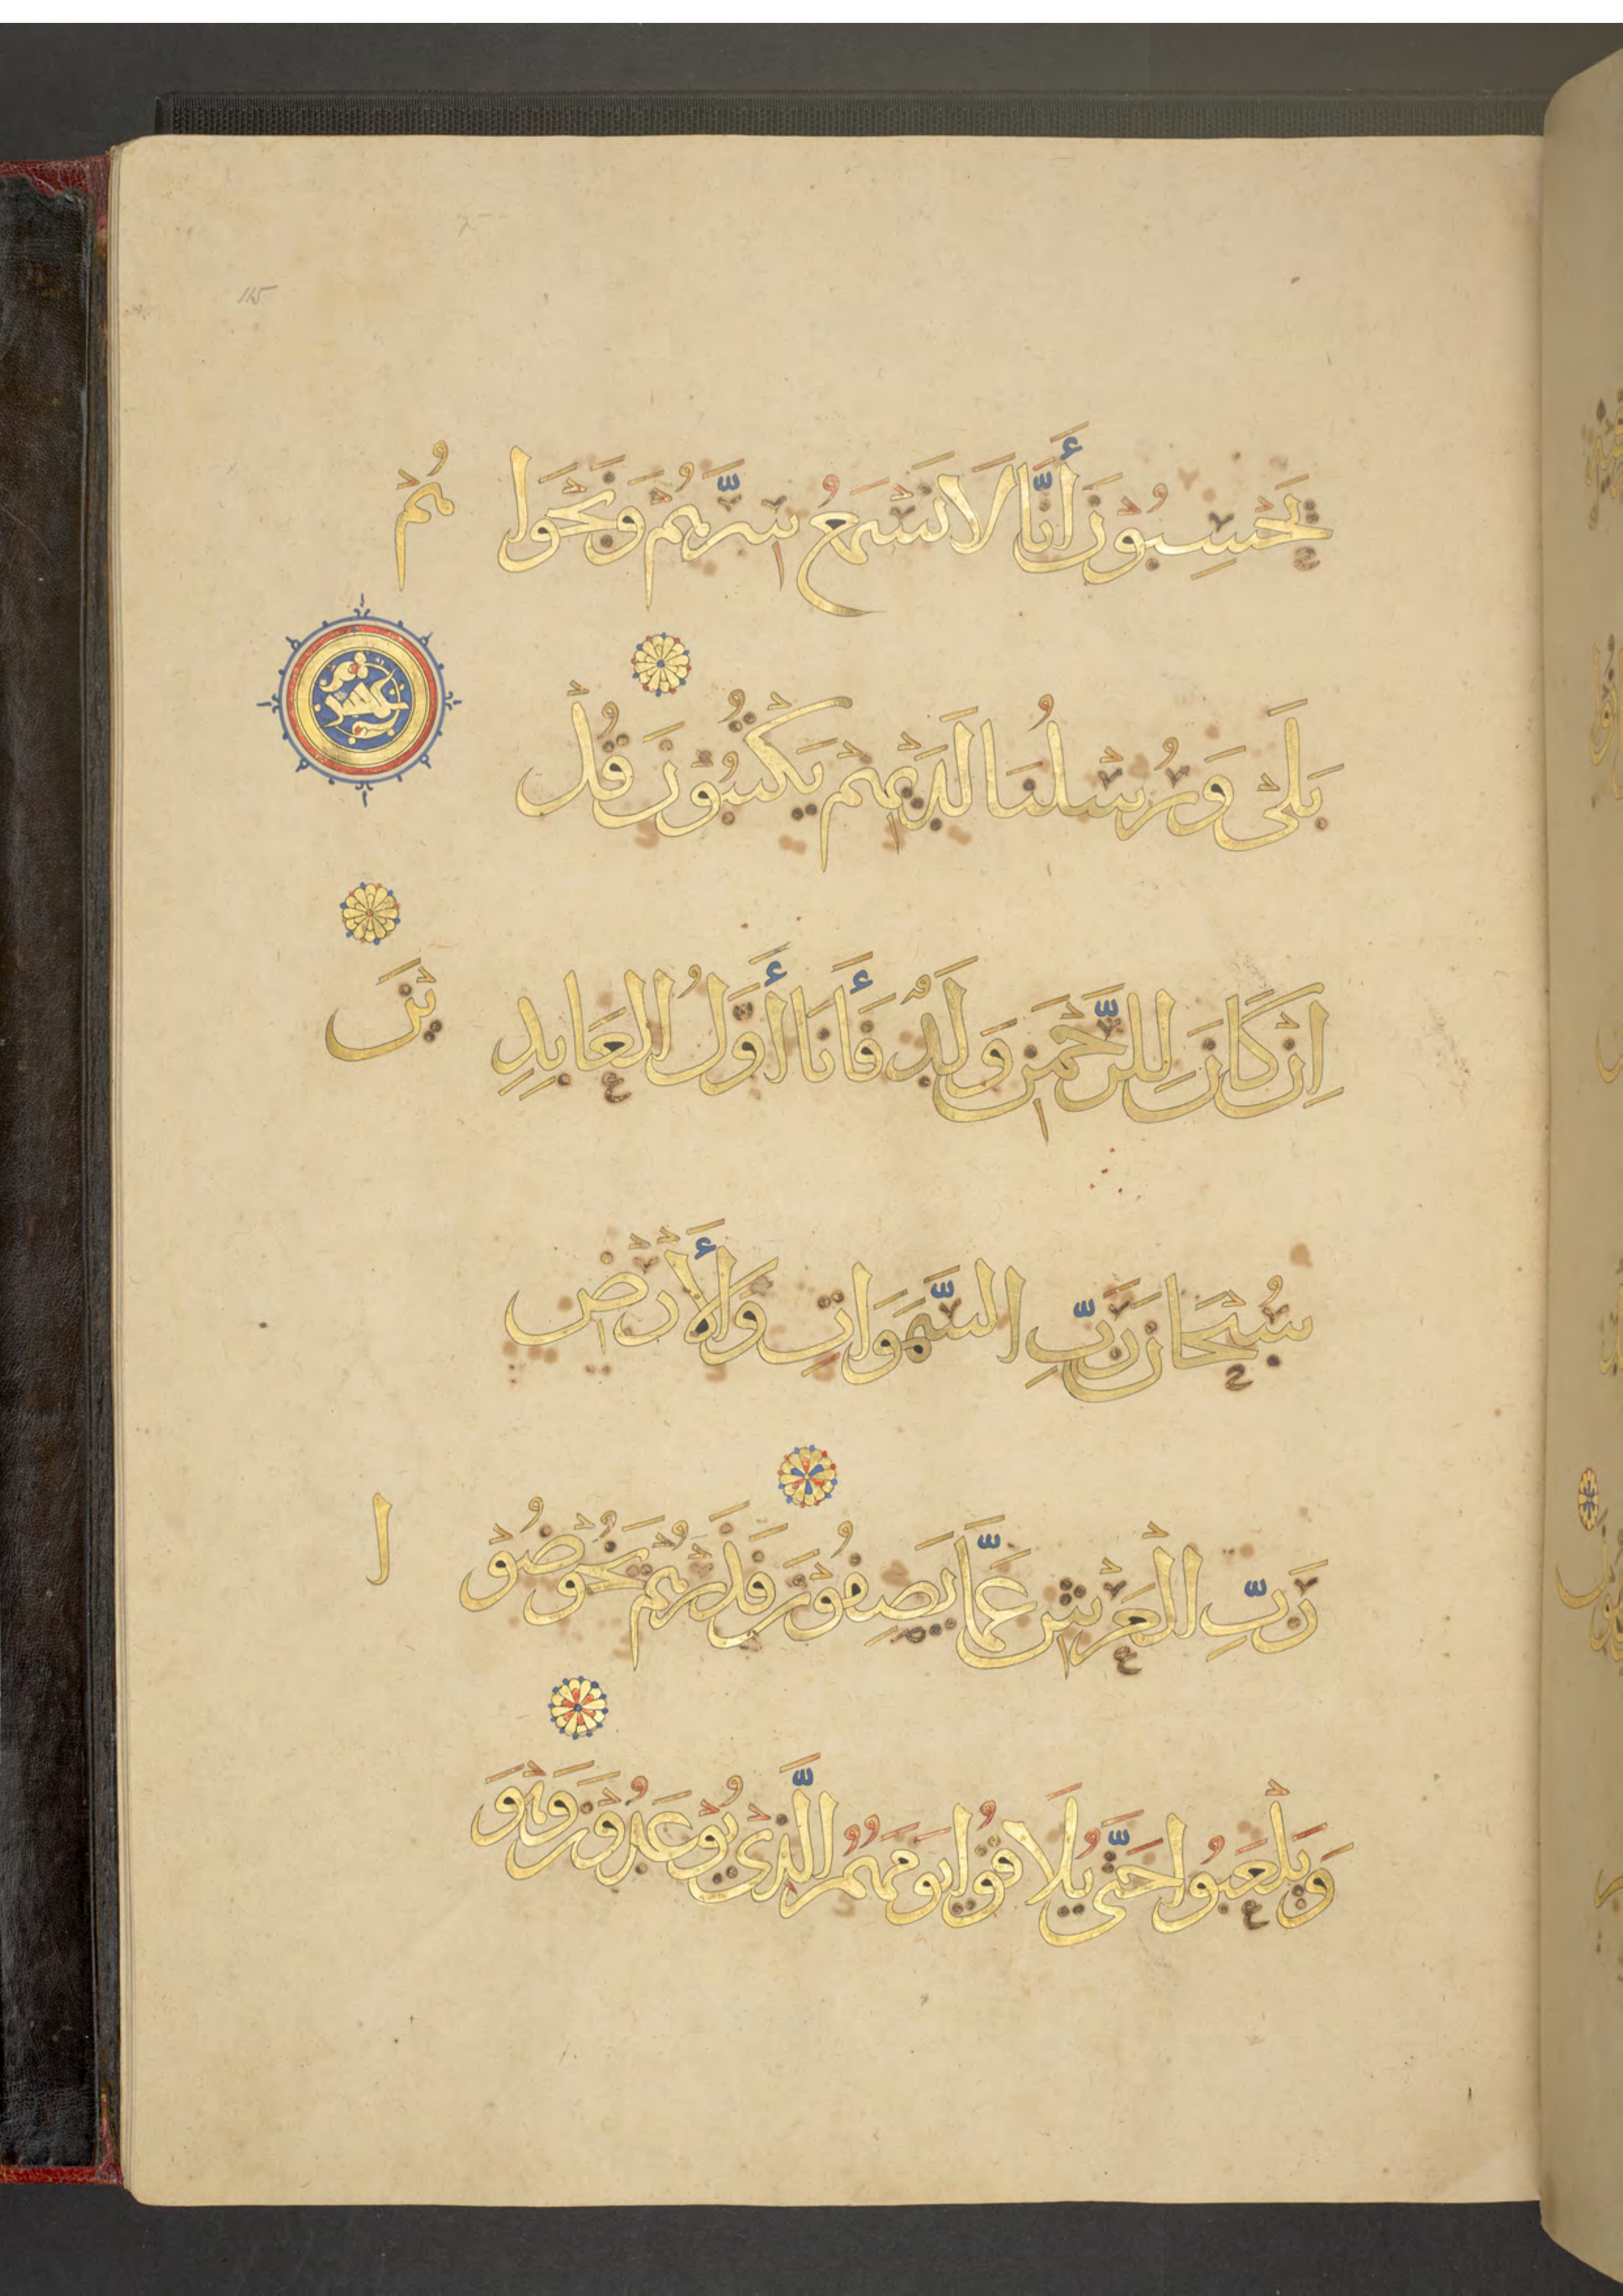 115
يَحْسِبُوْنَ أَنَّا لَا نَسْمَعُ سِرَّهُمْ وَنَجْوَا هُمْ
بَلَىْ وَرُسُلُنَا لَدَيْهِمْ يَكْتُبُوْنَ قُلْ
اِنْ كَانَ لِلرَّحْمٰنِ وَلَدٌ فَأَنَا أَوَّلُ الْعَابِدِ يْنَ
سُبْحَانَ رَبِّ السَّمَوَاتِ وَالْأَرْضِ
رَبِّ الْعَرْشِ عَمَّا يَصِفُوْنَ فَذَرْهُمْ يَخُوْضُوْ ا
وَيَلْعَبُوا حَتَّى يُلَاقُوا يَوْمَهُمُ الَّذِيْ يُوْعَدُوْنَ وَهْوَ